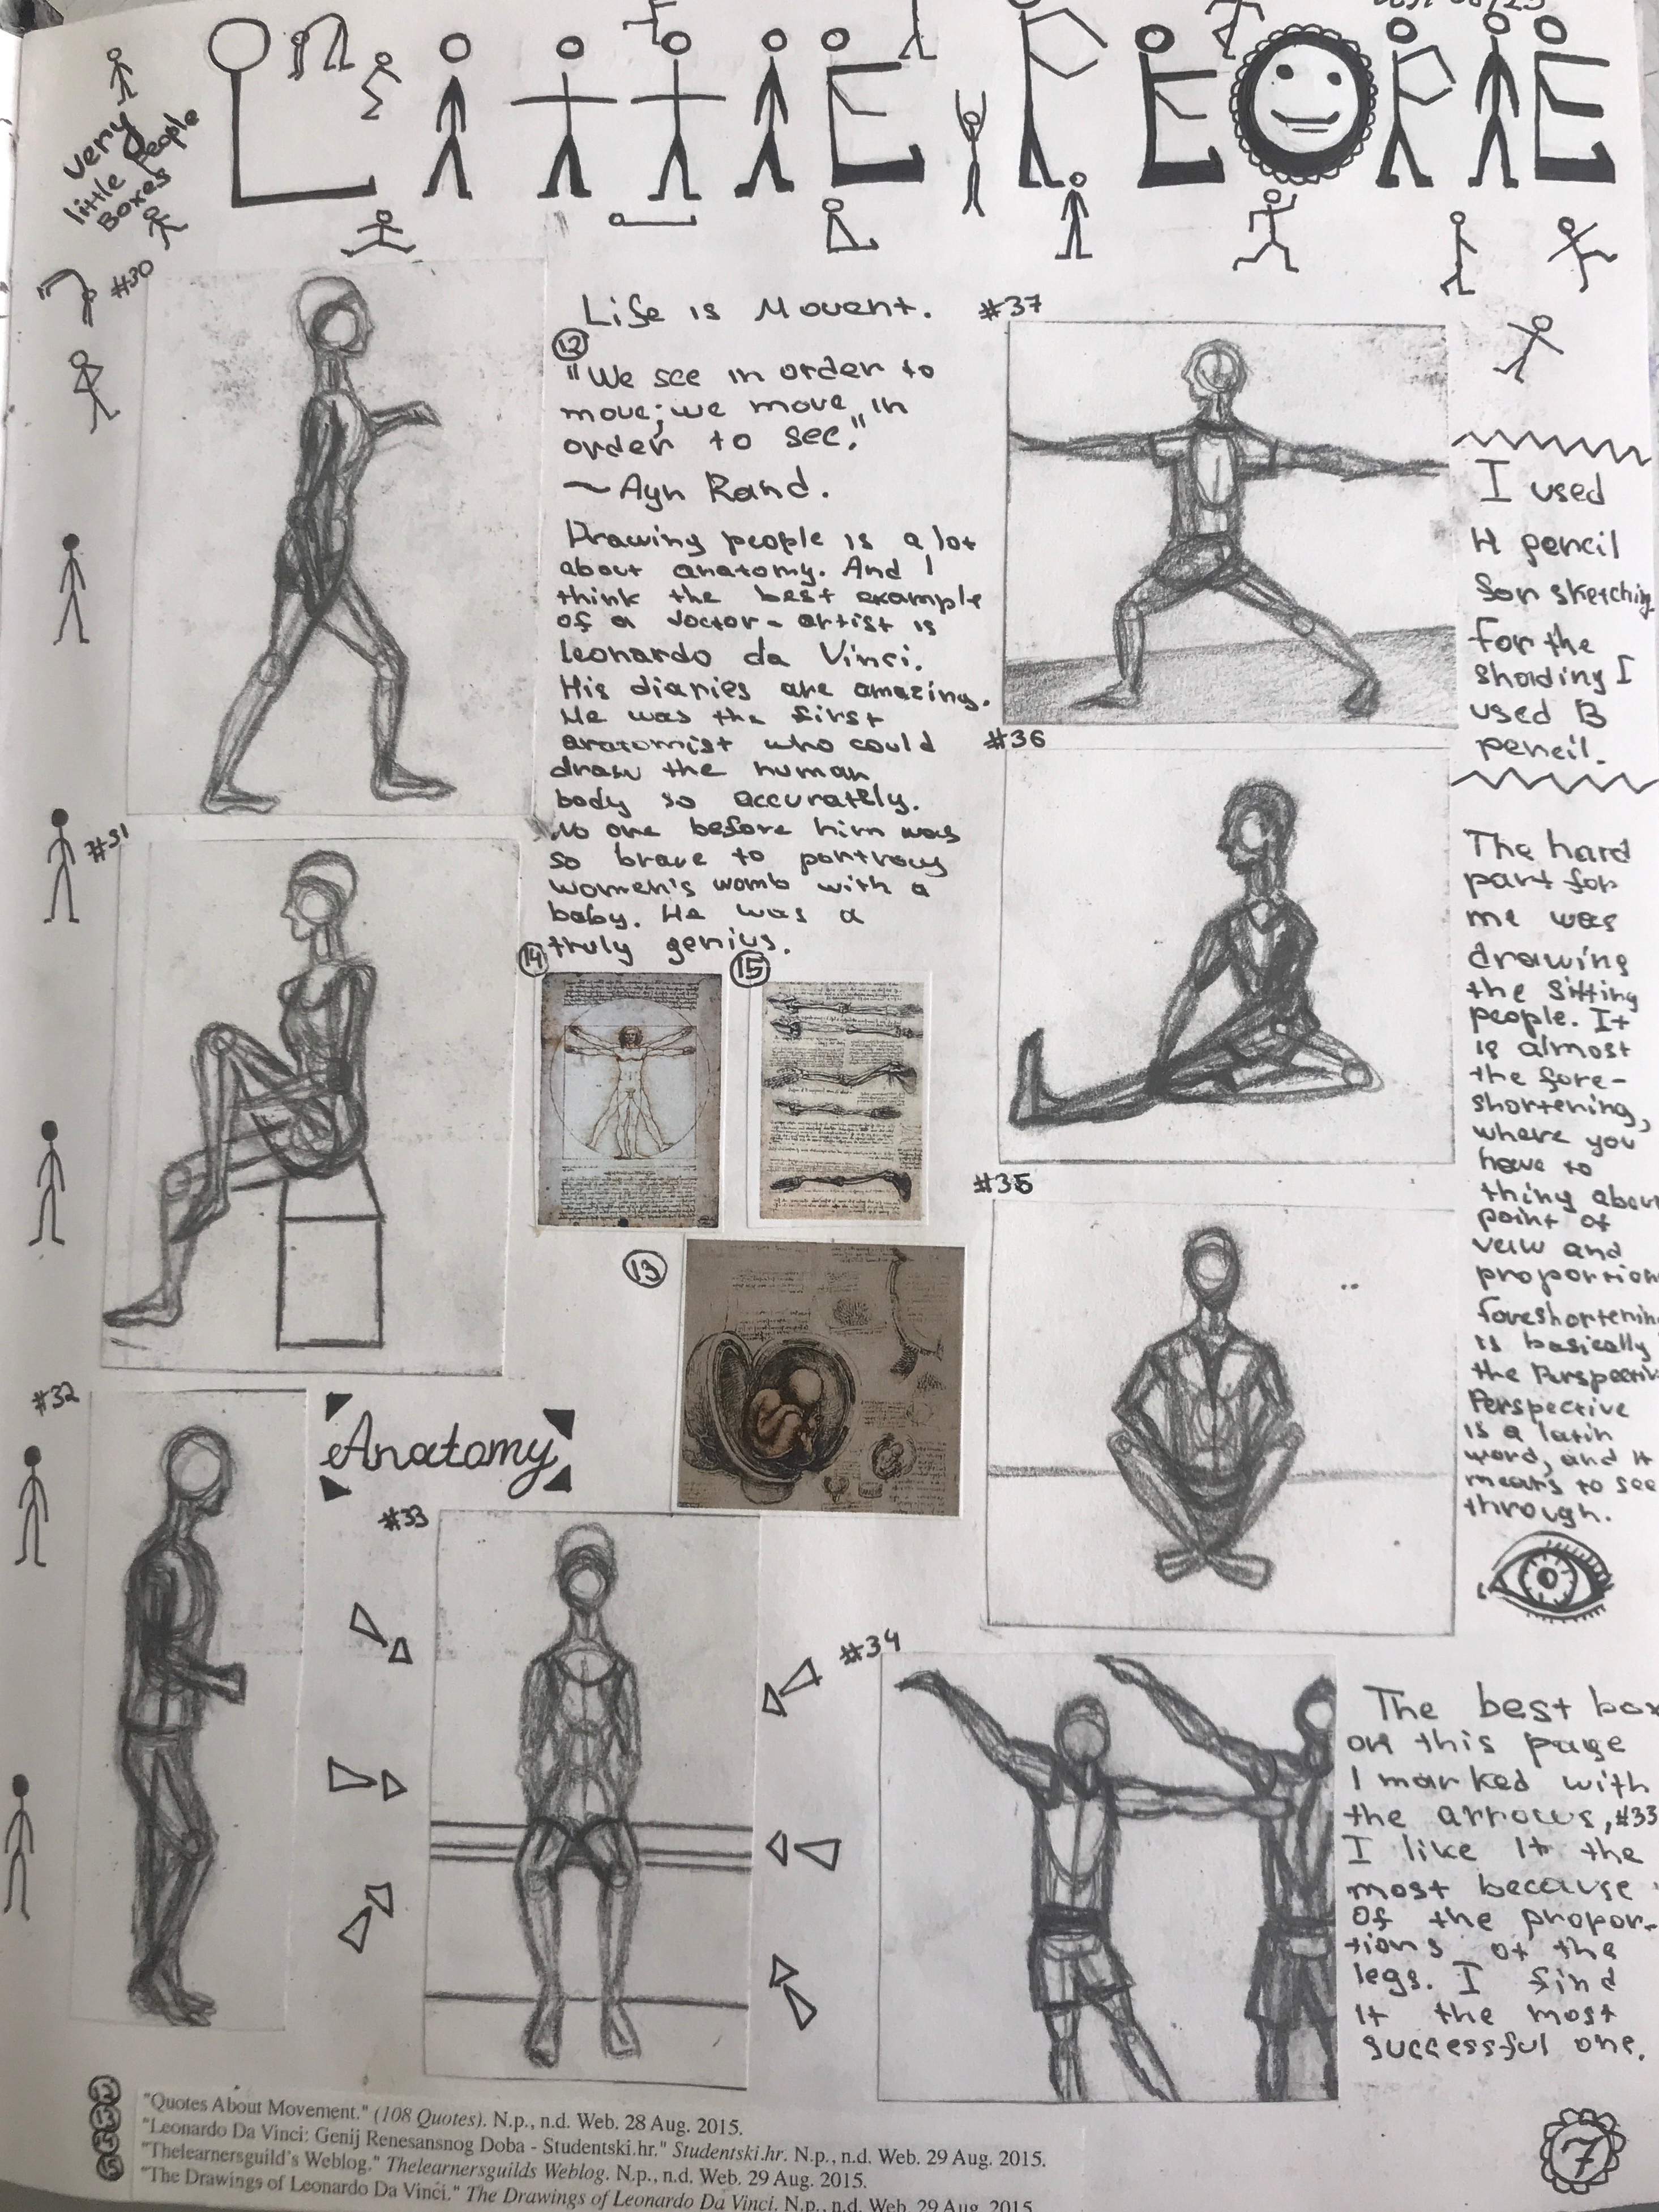 LITTLE PEOPLE
very
little People
Boxes
#30
Life is Movent.
12
"We see in order to
move; we move in
order to see."
~ Ayn Rand.
Drawing people is a lot
about anatomy. And I
think the best example
of a doctor-artist is
leonardo da Vinci.
His diaries are amazing.
He was the first
anatomist who could
draw the human
body so accurately.
No one before him was
so brave to portray
women's womb with a
baby. He was a
truly genius.
14
15
13
#31
#32
Anatomy
#33
#34
#37
#36
#35
I used
H pencil
for sketching
For the
shading I
used B
pencil.
The hard
part for
me was
drawing
the sitting
people. It
is almost
the fore-
shortening,
where you
have to
thing abou
point of
veiw and
proportion
foreshortenin
is basically
the Perspectiv
Perspective
is a latin
word, and it
means to see
through.
The best box
on this page
I marked with
the arrows, #33
I like it the
most because
of the propor-
tions of the
legs. I find
it the most
successful one.
12
13
14
15
"Quotes About Movement." (108 Quotes). N.p., n.d. Web. 28 Aug. 2015.
"Leonardo Da Vinci: Genij Renesansnog Doba - Studentski.hr." Studentski.hr. N.p., n.d. Web. 29 Aug. 2015.
"Thelearnersguild's Weblog." Thelearnersguilds Weblog. N.p., n.d. Web. 29 Aug. 2015.
"The Drawings of Leonardo Da Vinci." The Drawings of Leonardo Da Vinci. N.p., n.d. Web. 29 Aug. 2015.
7